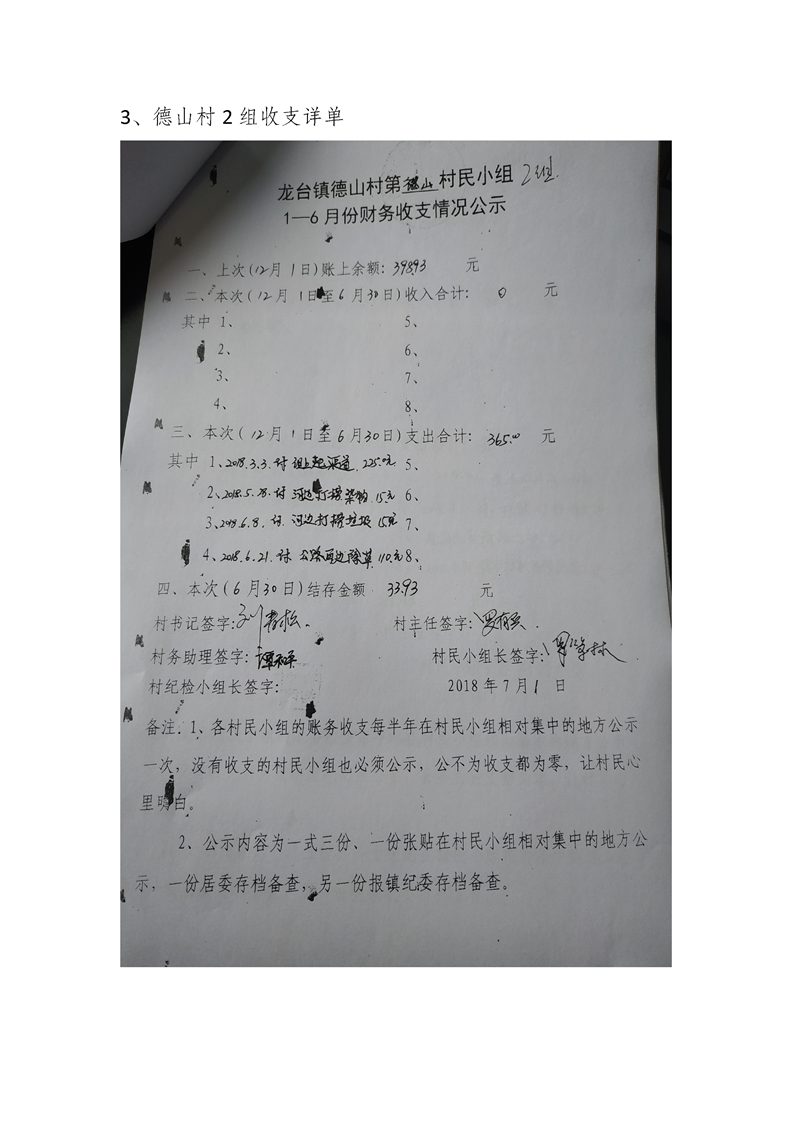 3、德山村 2 组收支详单
龙台镇德山村第德山村民小组 2组
1—6月份财务收支情况公示
一、上次(12月 1日)账上余额: 39893 元
二、本次(12月 1日至6月30日)收入合计: 0 元
其中 1、 5、
2、 6、
3、 7、
4、 8、
三、本次(12月1日至6月30日)支出合计: 365.00 元
其中 1、2018.3.3.付 组上起渠道, 225.0元 5、
2、2018.5.28.付 河边打捞 15元 6、
3、2018.6.8.付.河边打捞垃圾 15元 7、
4、2018.6.21.付 公路两边除草 110元 8、
四、本次(6月30日)结存金额 33.93 元
村书记签字: 村主任签字:
村务助理签字: 村民小组长签字:
村纪检小组长签字: 2018年7月1日
备注.1、各村民小组的账务收支每半年在村民小组相对集中的地方公示
一次，没有收支的村民小组也必须公示，公不为收支都为零，让村民心
里明白。
2、公示内容为一式三份、一份张贴在村民小组相对集中的地方公
示，一份居委存档备查，另一份报镇纪委存档备查。